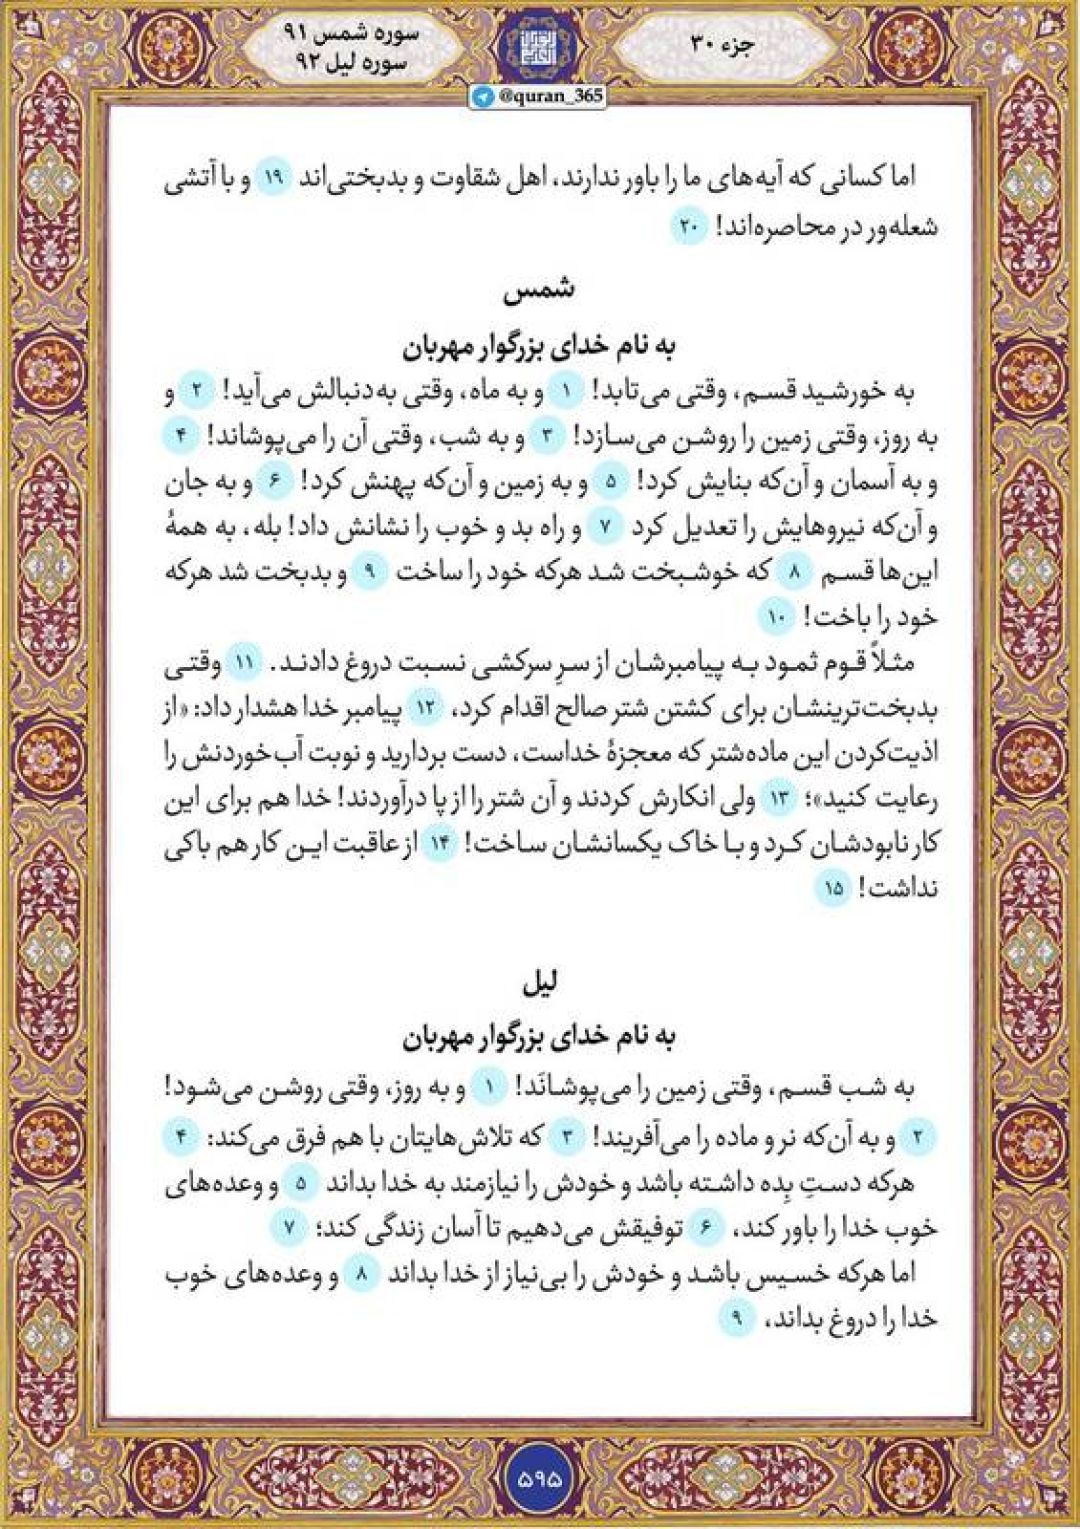 جزء ۳۰
سوره شمس ۹۱
سوره لیل ۹۲
@quran_365
اما کسانی که آیه‌های ما را باور ندارند، اهل شقاوت و بدبختی‌اند ۱۹ و با آتشی
شعله‌ور در محاصره‌اند! ۲۰
شمس
به نام خدای بزرگوار مهربان
به خورشید قسم، وقتی می‌تابد! ۱ و به ماه، وقتی به‌دنبالش می‌آید! ۲ و
به روز، وقتی زمین را روشن می‌سازد! ۳ و به شب، وقتی آن را می‌پوشاند! ۴
و به آسمان و آن‌که بنایش کرد! ۵ و به زمین و آن‌که پهنش کرد! ۶ و به جان
و آن‌که نیروهایش را تعدیل کرد ۷ و راه بد و خوب را نشانش داد! بله، به همهٔ
این‌ها قسم ۸ که خوشبخت شد هرکه خود را ساخت ۹ و بدبخت شد هرکه
خود را باخت! ۱۰
مثلاً قوم ثمود به پیامبرشان از سرِ سرکشی نسبت دروغ دادند. ۱۱ وقتی
بدبخت‌ترینشان برای کشتن شتر صالح اقدام کرد، ۱۲ پیامبر خدا هشدار داد: «از
اذیت‌کردن این ماده‌شتر که معجزهٔ خداست، دست بردارید و نوبت آب‌خوردنش را
رعایت کنید»؛ ۱۳ ولی انکارش کردند و آن شتر را از پا درآوردند! خدا هم برای این
کار نابودشان کرد و با خاک یکسانشان ساخت! ۱۴ از عاقبت این کار هم باکی
نداشت! ۱۵
لیل
به نام خدای بزرگوار مهربان
به شب قسم، وقتی زمین را می‌پوشانَد! ۱ و به روز، وقتی روشن می‌شود!
۲ و به آن‌که نر و ماده را می‌آفریند! ۳ که تلاش‌هایتان با هم فرق می‌کند: ۴
هرکه دستِ بِده داشته باشد و خودش را نیازمند به خدا بداند ۵ و وعده‌های
خوب خدا را باور کند، ۶ توفیقش می‌دهیم تا آسان زندگی کند؛ ۷
اما هرکه خسیس باشد و خودش را بی‌نیاز از خدا بداند ۸ و وعده‌های خوب
خدا را دروغ بداند، ۹
۵۹۵